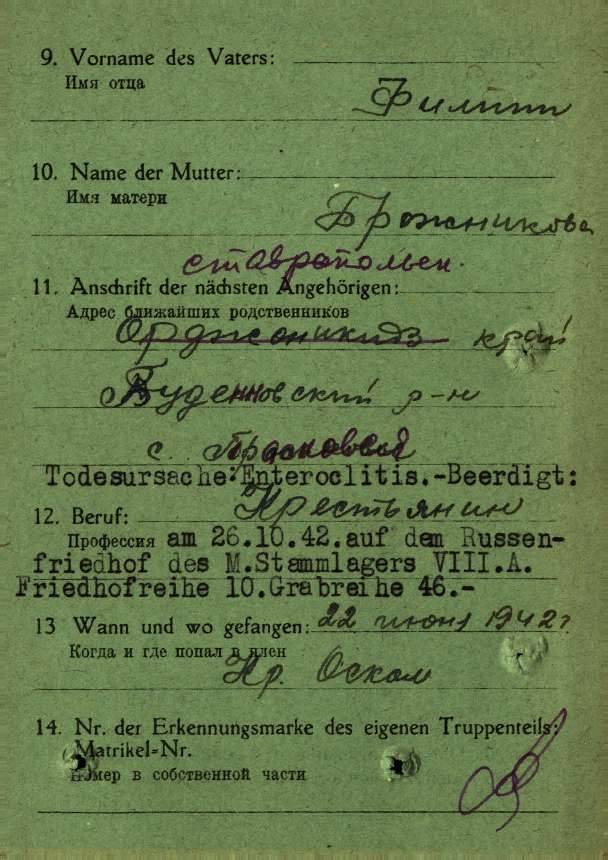 9. Vorname des Vaters:
Имя отца
Филипп
10. Name der Mutter:
Имя матери
Брожникова
ставропольск.
11. Anschrift der nächsten Angehörigen:
Адрес ближайших родственников
Орджоникидз край
Буденновский р-н
с. Прасковея
Todesursache:Enteroclitis.-Beerdigt:
12. Beruf: Крестьянин
Профессия am 26.10.42.auf dem Russen-
friedhof des M.Stammlagers VIII.A.
Friedhofreihe 10.Grabreihe 46.-
13 Wann und wo gefangen: 22 июня 1942г
Когда и где попал в плен
Кр. Оскол
14. Nr. der Erkennungsmarke des eigenen Truppenteils:
Matrikel-Nr.
Номер в собственной части